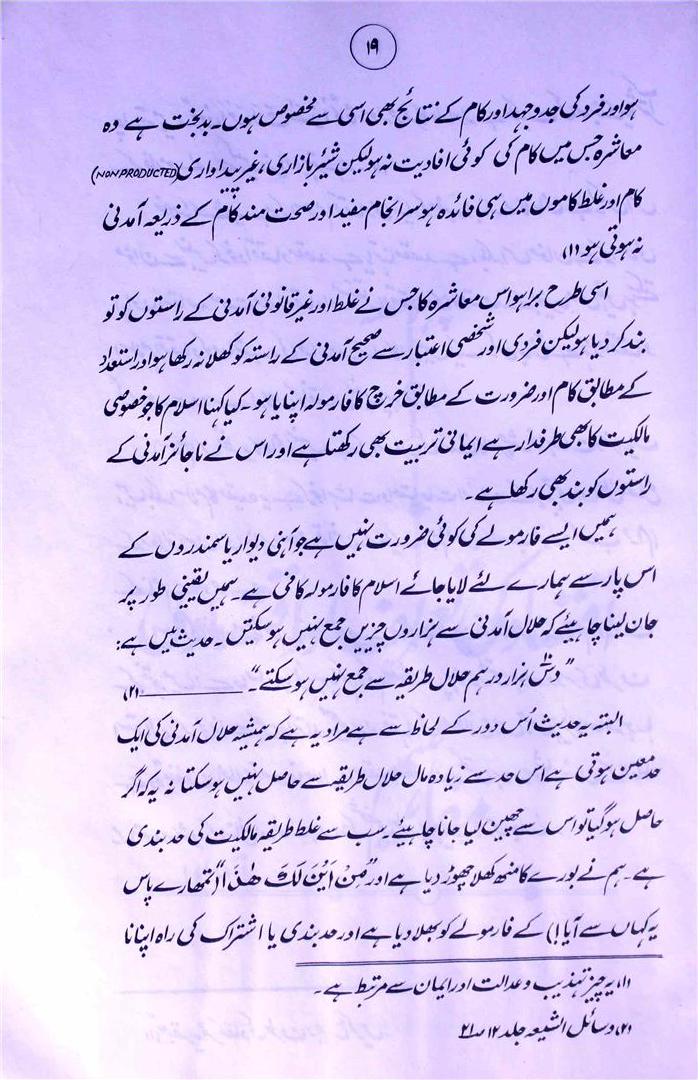 ۱۹
ہو اور فرد کی جدوجہد اور کام کے نتائج بھی اسی سے مخصوص ہوں۔ بدبخت ہے وہ
معاشرہ جس میں کام کی کوئی افادیت نہ ہو لیکن شیئر بازاری، غیر پیداواری (NONPRODUCTED)
کام اور غلط کاموں میں ہی فائدہ ہو سرانجام مفید اور صحت مند کام کے ذریعہ آمدنی
نہ ہوتی ہو (۱)
اسی طرح برا ہو اس معاشرہ کا جس نے غلط اور غیر قانونی آمدنی کے راستوں کو تو
بند کر دیا ہو لیکن فردی اور شخصی اعتبار سے صحیح آمدنی کے راستہ کو کھلا نہ رکھا ہو اور استعداد
کے مطابق کام اور ضرورت کے مطابق خرچ کا فارمولہ اپنایا ہو۔ کیا کہنا اسلام کا جو خصوصی
مالکیت کا بھی طرفدار ہے ایمانی تربیت بھی رکھتا ہے اور اس نے ناجائز آمدنی کے
راستوں کو بند بھی رکھا ہے۔
ہمیں ایسے فارمولے کی کوئی ضرورت نہیں ہے جو آہنی دیوار یا سمندروں کے
اس پار سے ہمارے لئے لایا جائے اسلام کا فارمولہ کافی ہے۔ ہمیں یقینی طور پر
جان لینا چاہیئے کہ حلال آمدنی سے ہزاروں چیزیں جمع نہیں ہو سکتیں۔ حدیث میں ہے:
”دس ۱۰ ہزار درہم حلال طریقہ سے جمع نہیں ہو سکتے۔“ ــــــــــــ (۲)
البتہ یہ حدیث اُس دور کے لحاظ سے ہے مراد یہ ہے کہ ہمیشہ حلال آمدنی کی ایک
حد معین ہوتی ہے اس حد سے زیادہ مال حلال طریقہ سے حاصل نہیں ہو سکتا نہ یہ کہ اگر
حاصل ہو گیا تو اس سے چھین لیا جانا چاہیئے۔ سب سے غلط طریقہ مالکیت کی حد بندی
ہے۔ ہم نے بورے کا منھ کھلا چھوڑ دیا ہے اور ”مِنْ اَيْنَ لَكَ هٰذَا“ (تمھارے پاس
یہ کہاں سے آیا!) کے فارمولے کو بھلا دیا ہے اور حد بندی یا اشتراک کی راہ اپنانا
(۱) یہ چیز تہذیب و عدالت اور ایمان سے مرتبط ہے۔
(۲) وسائل الشیعہ جلد ۱۲ ص ۲۱